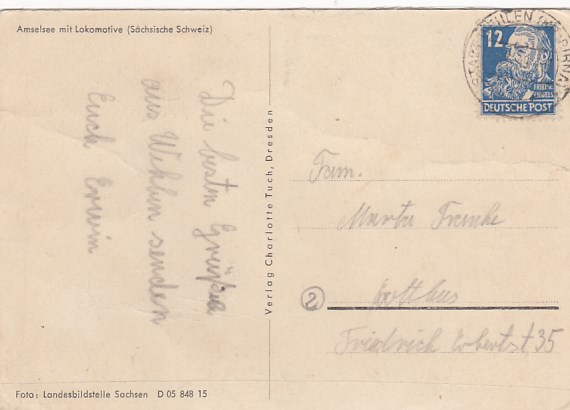 Amselsee mit Lokomotive (Sächsische Schweiz)
Die besten Grüße
aus Wehlen senden
Euch Erwin
Verlag Charlotte Tuch, Dresden
12
FRIEDRICH
ENGELS
DEUTSCHE POST
Fam.
Marta Franke
2
Cottbus
Friedrich Ebertst. 35
Foto: Landesbildstelle Sachsen D 05 848 15